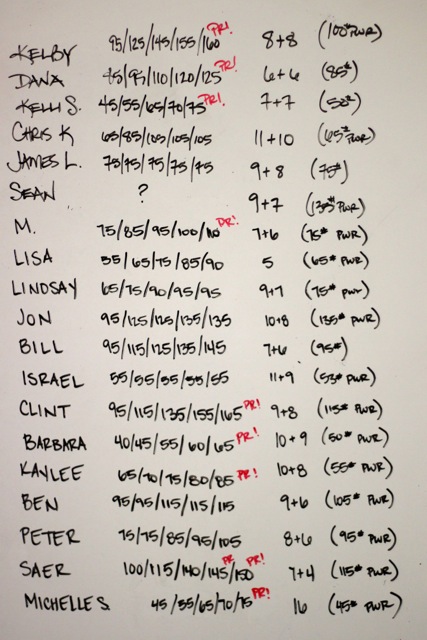 KELBY 95/125/145/155/160 PR! 8+8 (100# PWR)
DANA 85/95/110/120/125 PR! 6+6 (85#)
KELLI S. 45/55/65/70/75 PR! 7+7 (50#)
CHRIS K 65/85/105/105/105 11+10 (65# PWR)
JAMES L. 75/75/75/75/75 9+8 (75#)
SEAN ? 9+7 (135# PWR)
M. 75/85/95/100/110 PR! 7+6 (75# PWR)
LISA 55/65/75/85/90 5 (65# PWR)
LINDSAY 65/75/90/95/95 9+7 (75# PWR)
JON 95/125/125/135/135 10+8 (135# PWR)
BILL 95/115/125/135/145 7+6 (95#)
ISRAEL 55/55/55/55/55 11+9 (53# PWR)
CLINT 95/115/135/155/165 PR! 9+8 (115# PWR)
BARBARA 40/45/55/60/65 PR! 10+9 (50# PWR)
KAYLEE 65/70/75/80/85 PR! 10+8 (55# PWR)
BEN 95/95/115/115/115 9+6 (105# PWR)
PETER 75/75/85/95/105 8+6 (95# PWR)
SAER 100/115/140/145 PR/150 PR! 7+4 (115# PWR)
MICHELLE S. 45/55/65/70/75 PR! 16 (45# PWR)